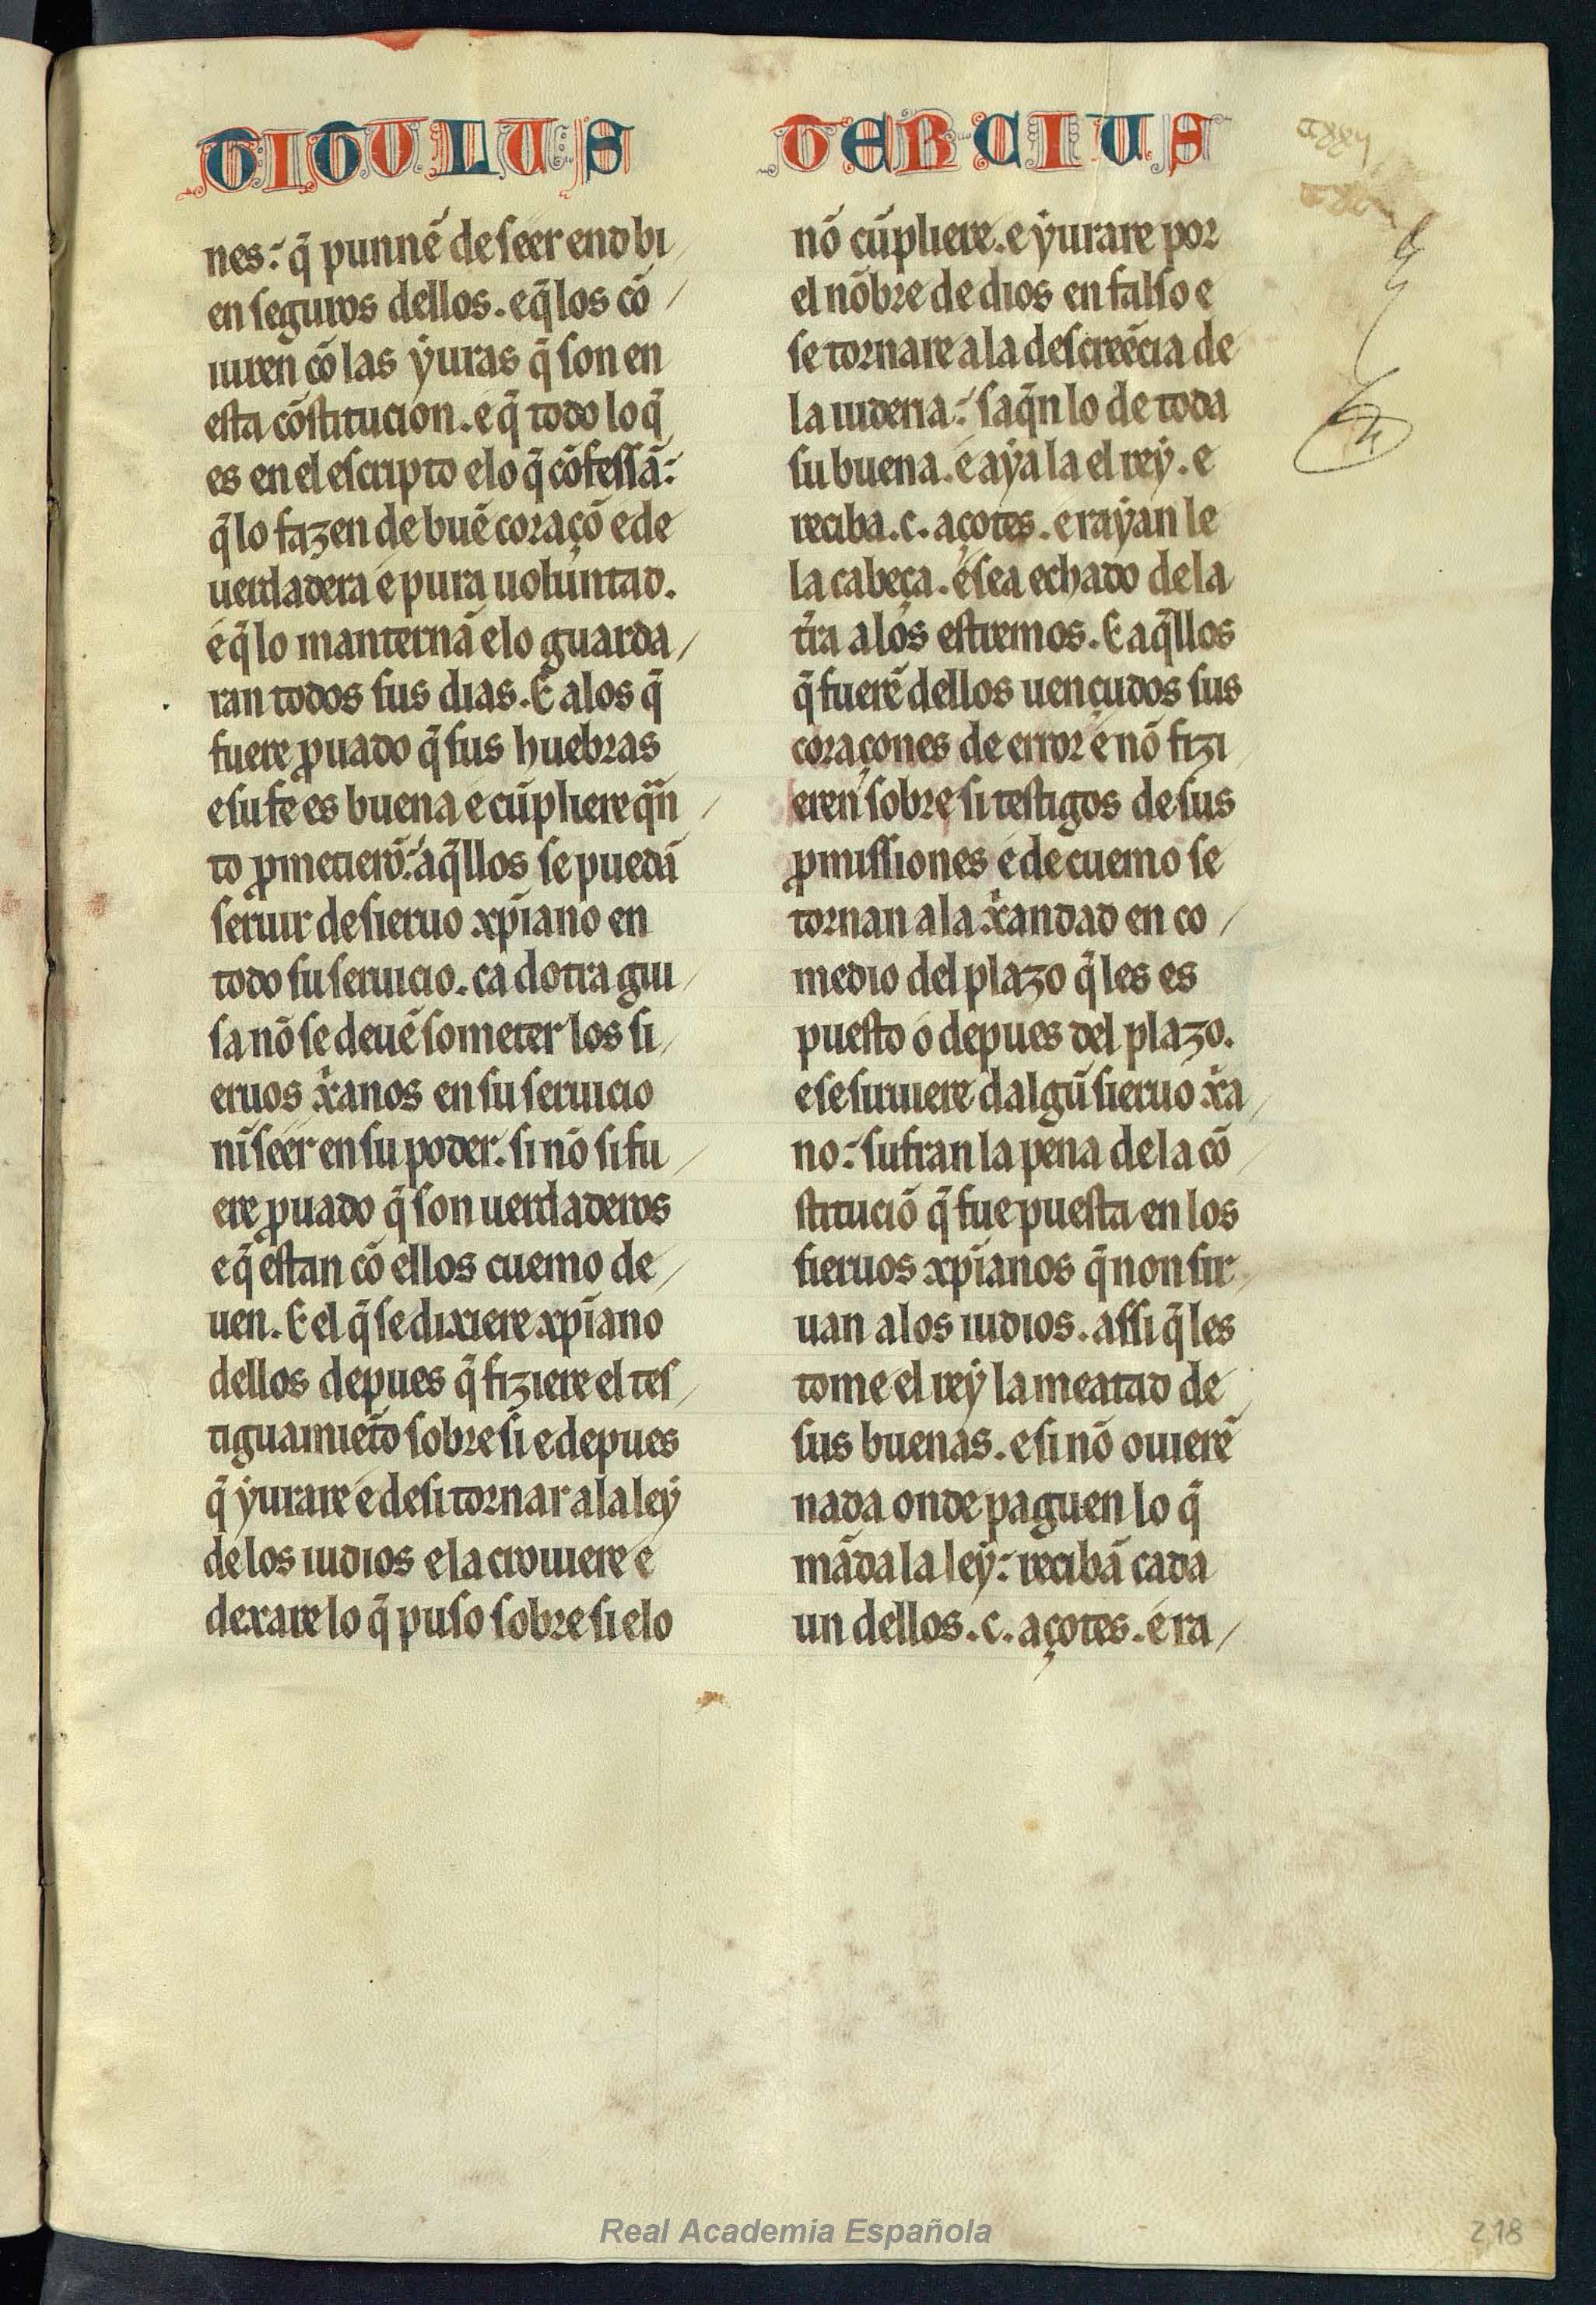 TITULUS TERCIUS
nes. q̃ punnẽ de seer end bi
en seguros dellos. e q̃ los cõ
iuren cõ las yuras q̃ son en
esta cõstitucion. e q̃ todo lo q̃
es en el escripto e lo q̃ cõfessã.
q̃ lo fazen de buẽ coraçõ e de
uerdadera e pura uoluntad.
e q̃ lo manternã e lo guarda
ran todos sus dias. E a los q̃
fuere ꝓuado q̃ sus huebras
e su fe es buena e cũpliere q̃n
to ꝓmetierõ. aq̃llos se puedã
seruir de sieruo xp̃iano en
todo su seruicio. ca dotra gui
sa nõ se deuẽ someter los si
eruos xanos en su seruicio
nĩ seer en su poder. si nõ si fu
ere ꝓuado q̃ son uerdaderos
e q̃ estan cõ ellos cuemo de
uen. E el q̃ se dixiere xp̃iano
dellos depues q̃ fiziere el tes
tiguamiẽto sobre si e depues
q̃ yurare e desi tornar a la ley
de los iudios e la crouiere e
dexare lo q̃ puso sobre si e lo
nõ cũpliere. e yurare por
el nõbre de dios en falso e
se tornare a la descreẽcia de
la iuderia. saq̃n lo de toda
su buena. e aya la el rey. e
reciba .c. açotes. e rayan le
la cabeça. e sea echado de la
tr̃a a los estremos. E aq̃llos
q̃ fuerẽ dellos uençudos sus
coraçones de error e nõ fizi
eren sobre si testigos de sus
ꝓmissiones e de cuemo se
tornan a la xandad en co
medio del plazo q̃ les es
puesto o depues del plazo.
e se siruiere dalgũ sieruo xa
no. sufran la pena de la cõ
stituciõ q̃ fue puesta en los
sieruos xp̃ianos q̃ non sir
uan a los iudios. assi q̃ les
tome el rey la meatad de
sus buenas. e si nõ ouierẽ
nada onde paguen lo q̃
mãda la ley. recibã cada
un dellos .c. açotes. e ra
Real Academia Española
218